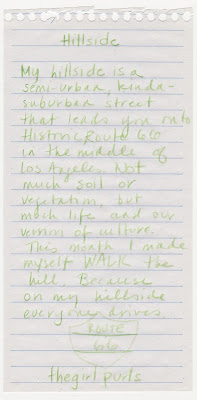 Hillside
My hillside is a
semi-urban, kinda-
suburban street
that leads you onto
Historic Route 66
in the middle of
Los Angeles. Not
much soil or
vegetation, but
much life and our
version of culture.
This month I made
myself WALK the
hill. Because
on my hillside
everyone drives.
ROUTE
66
thegirl purls